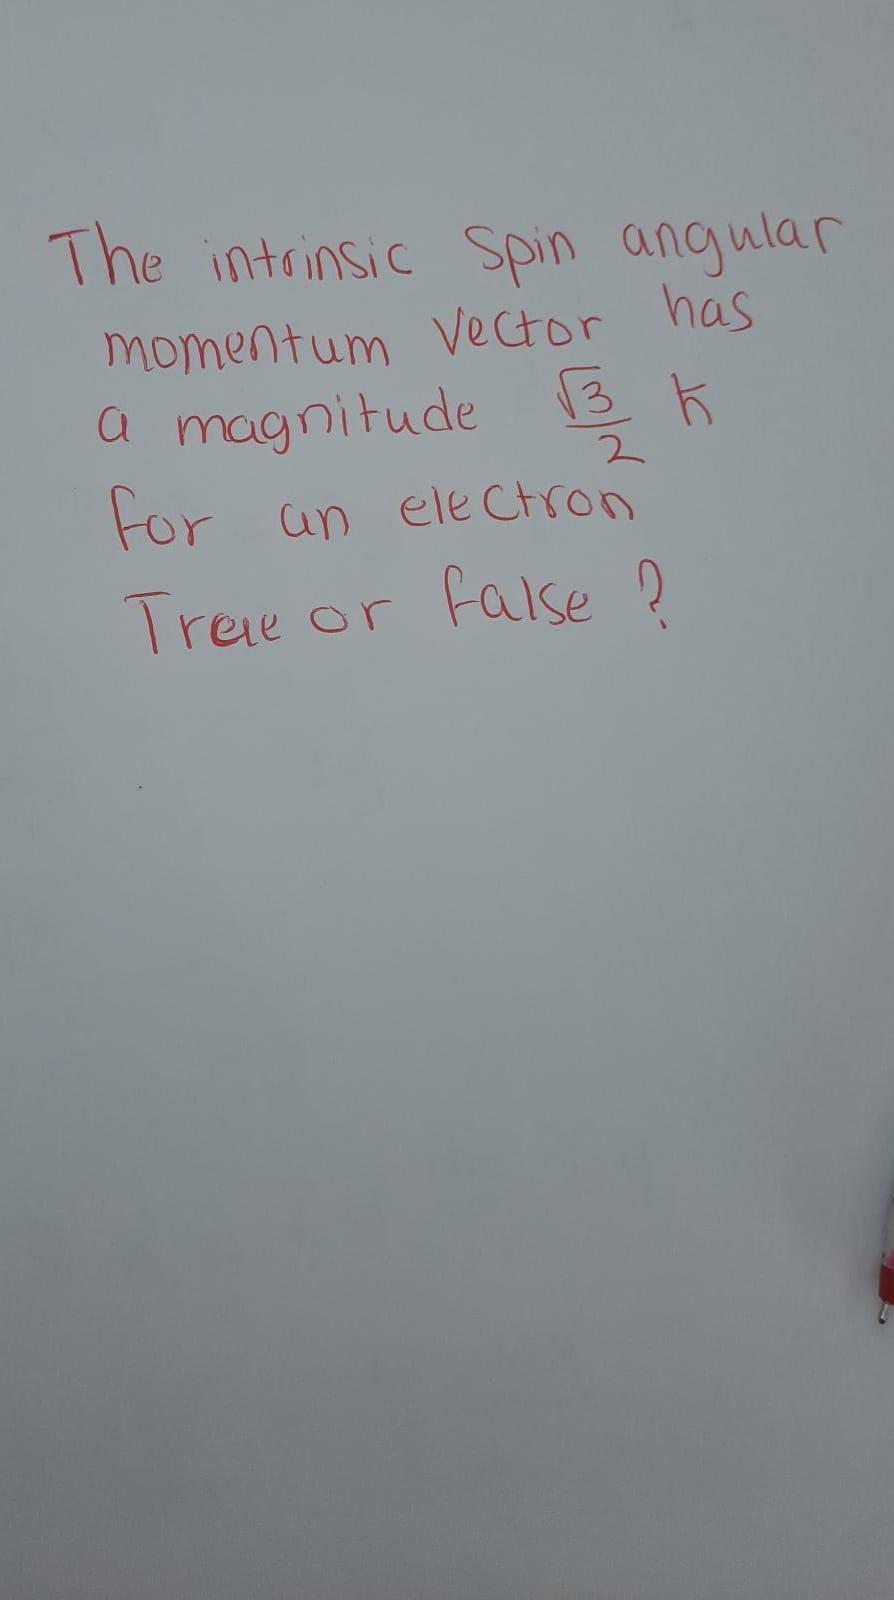 The intrinsic Spin angular
momentum Vector has
a magnitude √3/2 ħ
for an electron
True or false ?